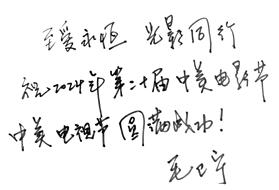 至爱永恒 光影同行
祝2024年第二十届中美电影节
中美电视节圆满成功！